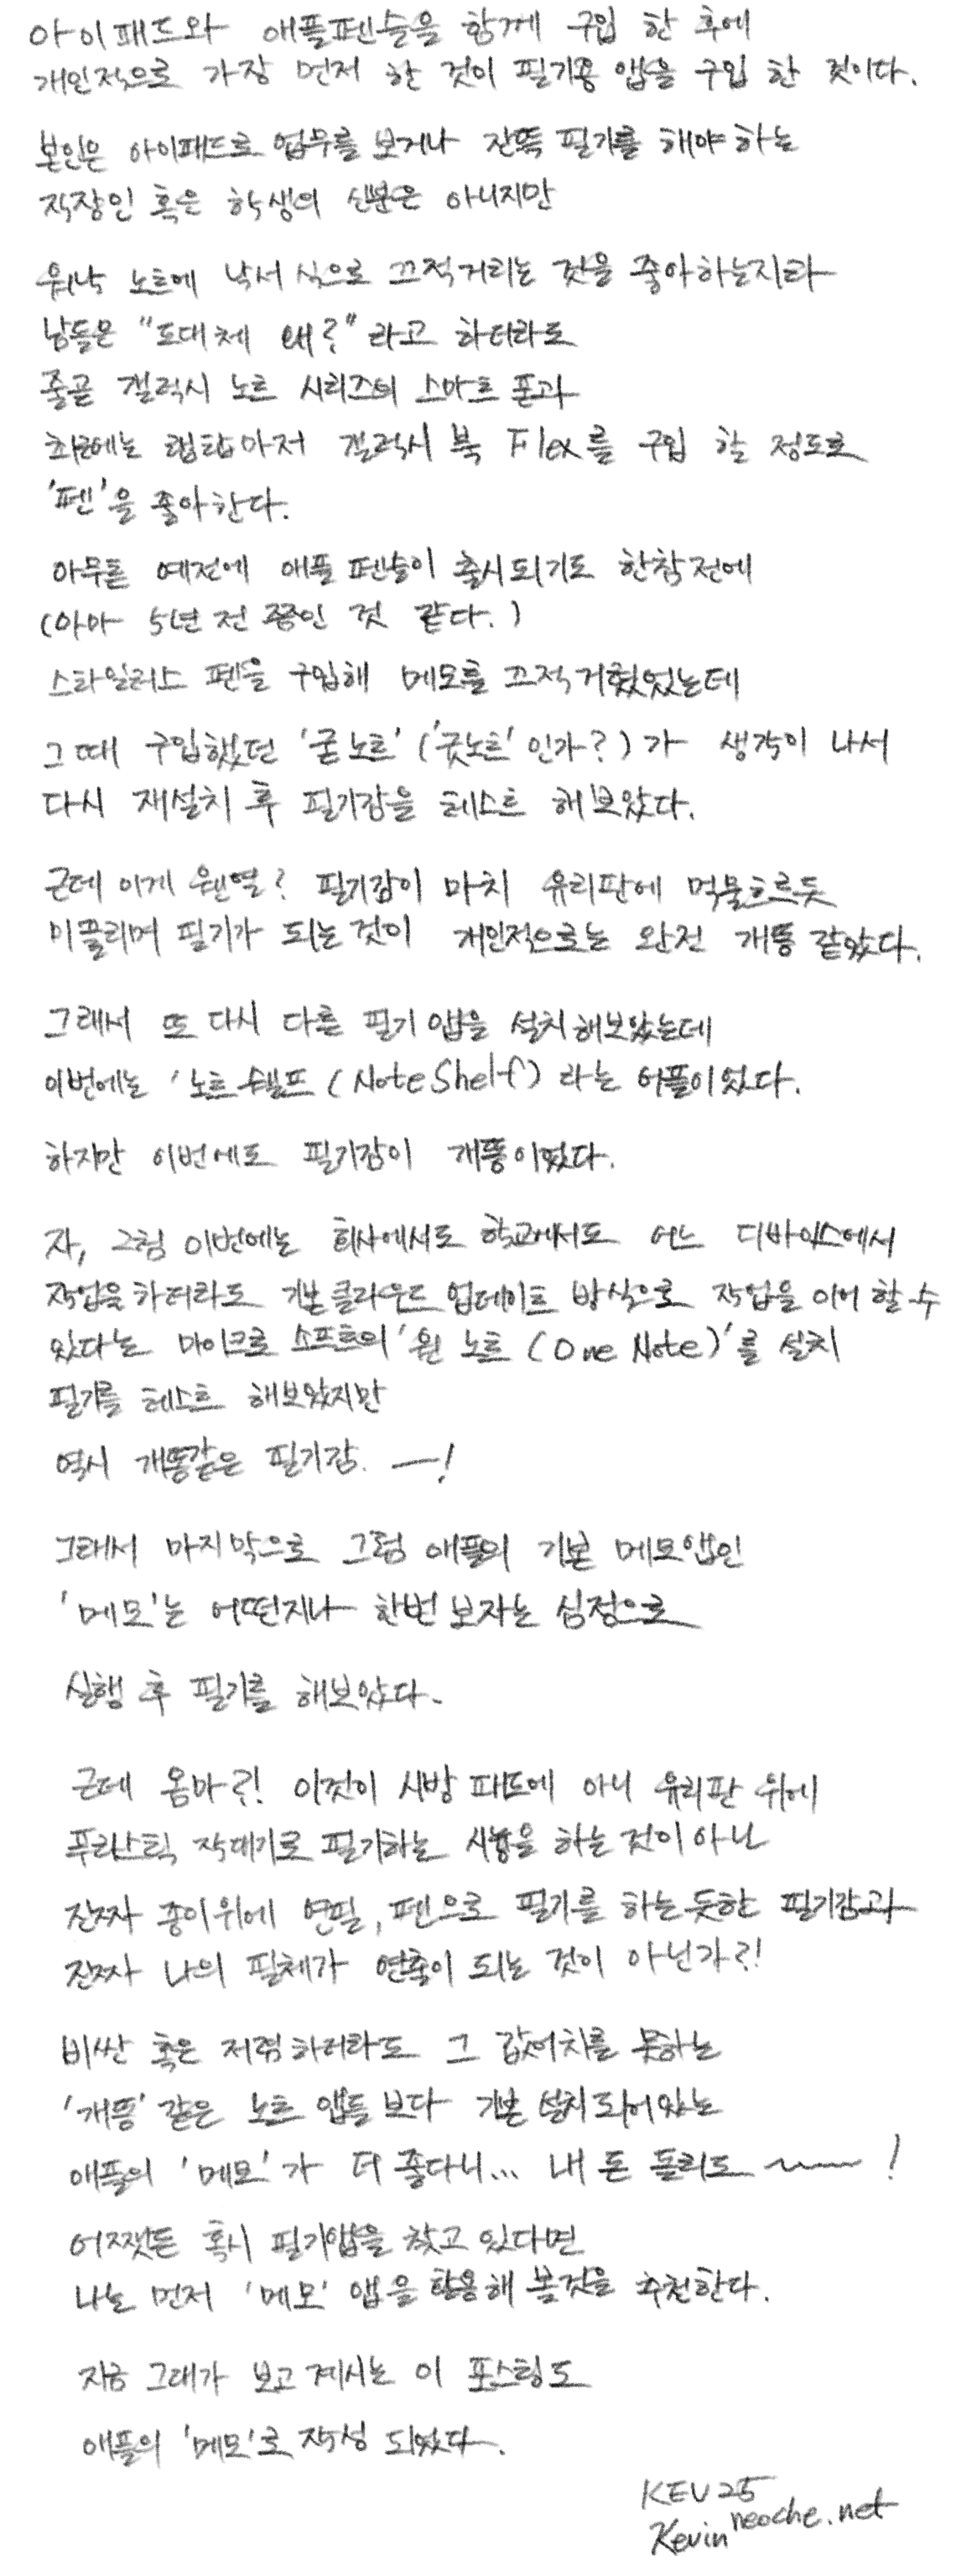 아이패드와 애플펜슬을 함께 구입 한 후에
개인적으로 가장 먼저 한 것이 필기용 앱을 구입 한 것이다.
본인은 아이패드로 업무를 보거나 잔뜩 필기를 해야하는
직장인 혹은 학생의 신분은 아니지만
워낙 노트에 낙서 식으로 끄적거리는 것을 좋아하는지라
남들은 "도대체 왜?" 라고 하더라도
줄곧 갤럭시 노트 시리즈의 스마트 폰과
최근에는 랩탑마저 갤럭시 북 Flex를 구입 할 정도로
'펜'을 좋아한다.
아무튼 예전에 애플 펜슬이 출시되기도 한참전에
(아마 5년 전 쯤인 것 같다.)
스타일러스 펜을 구입해 메모를 끄적거렸었는데
그 때 구입했던 '굳노트' ('굿노트' 인가?)가 생각이 나서
다시 재설치 후 필기감을 테스트 해보았다.
근데 이게 웬열? 필기감이 마치 유리판에 먹물흐르듯
미끌리며 필기가 되는 것이 개인적으로는 완전 개똥 같았다.
그래서 또 다시 다른 필기 앱을 설치해보았는데
이번에는 '노트쉘프 (NoteShelf) 라는 어플이었다.
하지만 이번에도 필기감이 개똥이었다.
자, 그럼 이번에는 회사에서도 학교에서도 어느 디바이스에서
작업을 하더라도 기본 클라우드 업데이트 방식으로 작업을 이어 할 수
있다는 마이크로 소프트의 '원 노트 (One Note)'를 설치
필기를 테스트 해보았지만
역시 개똥같은 필기감. ー!
그래서 마지막으로 그럼 애플의 기본 메모앱인
'메모'는 어떤지나 한번 보자는 심정으로
실행 후 필기를 해보았다.
근데 옴마?! 이것이 시방 패드에 아니 유리판 위에
푸라스틱 작대기로 필기하는 시늉을 하는 것이 아닌
진짜 종이위에 연필, 펜으로 필기를 하는듯한 필기감과
진짜 나의 필체가 연출이 되는 것이 아닌가?!
비싼 혹은 저렴하더라도 그 값어치를 못하는
'개똥' 같은 노트 앱들 보다 기본 설치되어있는
애플의 '메모'가 더 좋다니... 내 돈 돌리도 ~ !
어쨌든 혹시 필기앱을 찾고 있다면
나는 먼저 '메모' 앱을 활용해 볼것을 추천한다.
지금 그대가 보고 계시는 이 포스팅도
애플의 '메모'로 작성 되었다.
KEV25
Kevin neoche.net